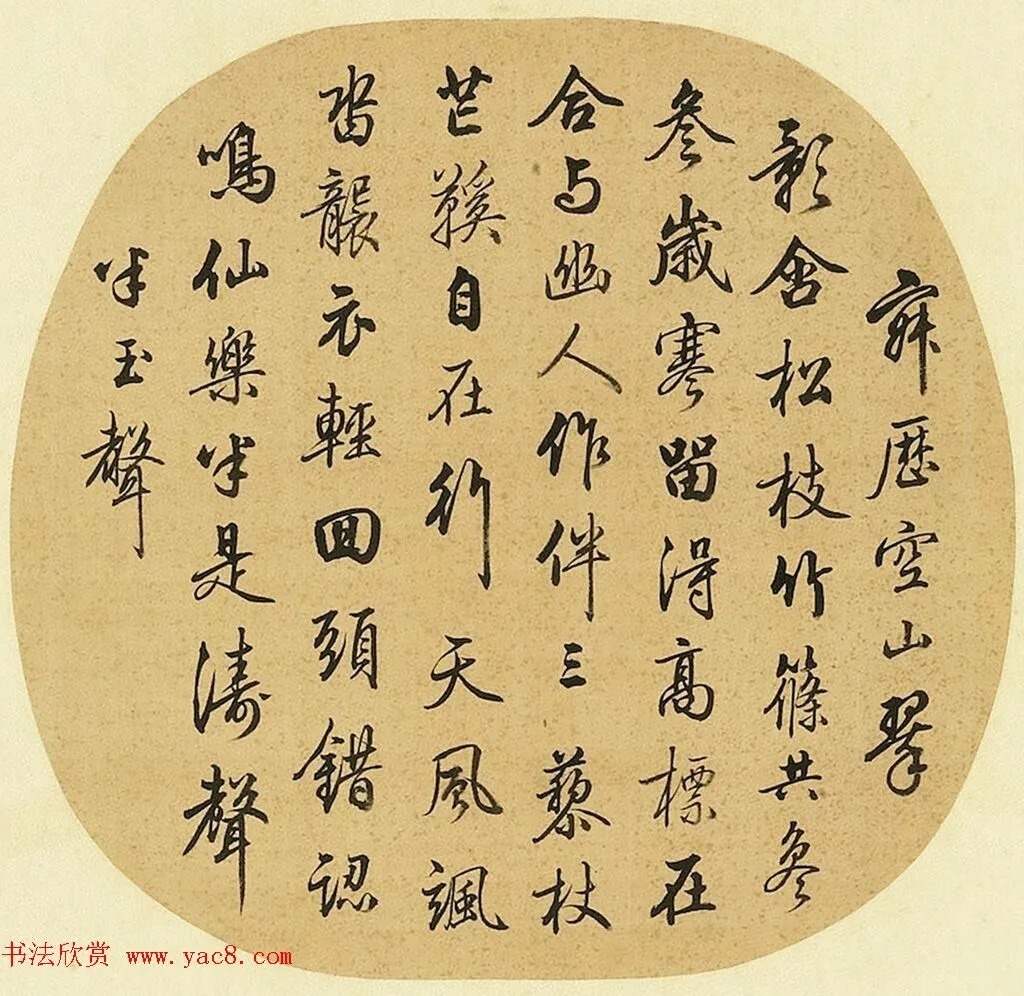 寂歷空山翠
影含松枝竹篠共參
參歲寒留得高標在
合與幽人作伴三藜杖
芒鞵自在行天風颯
沓襲衣輕回頭錯認
鳴仙樂半是濤聲
半玉聲
书法欣赏 www.yac8.com